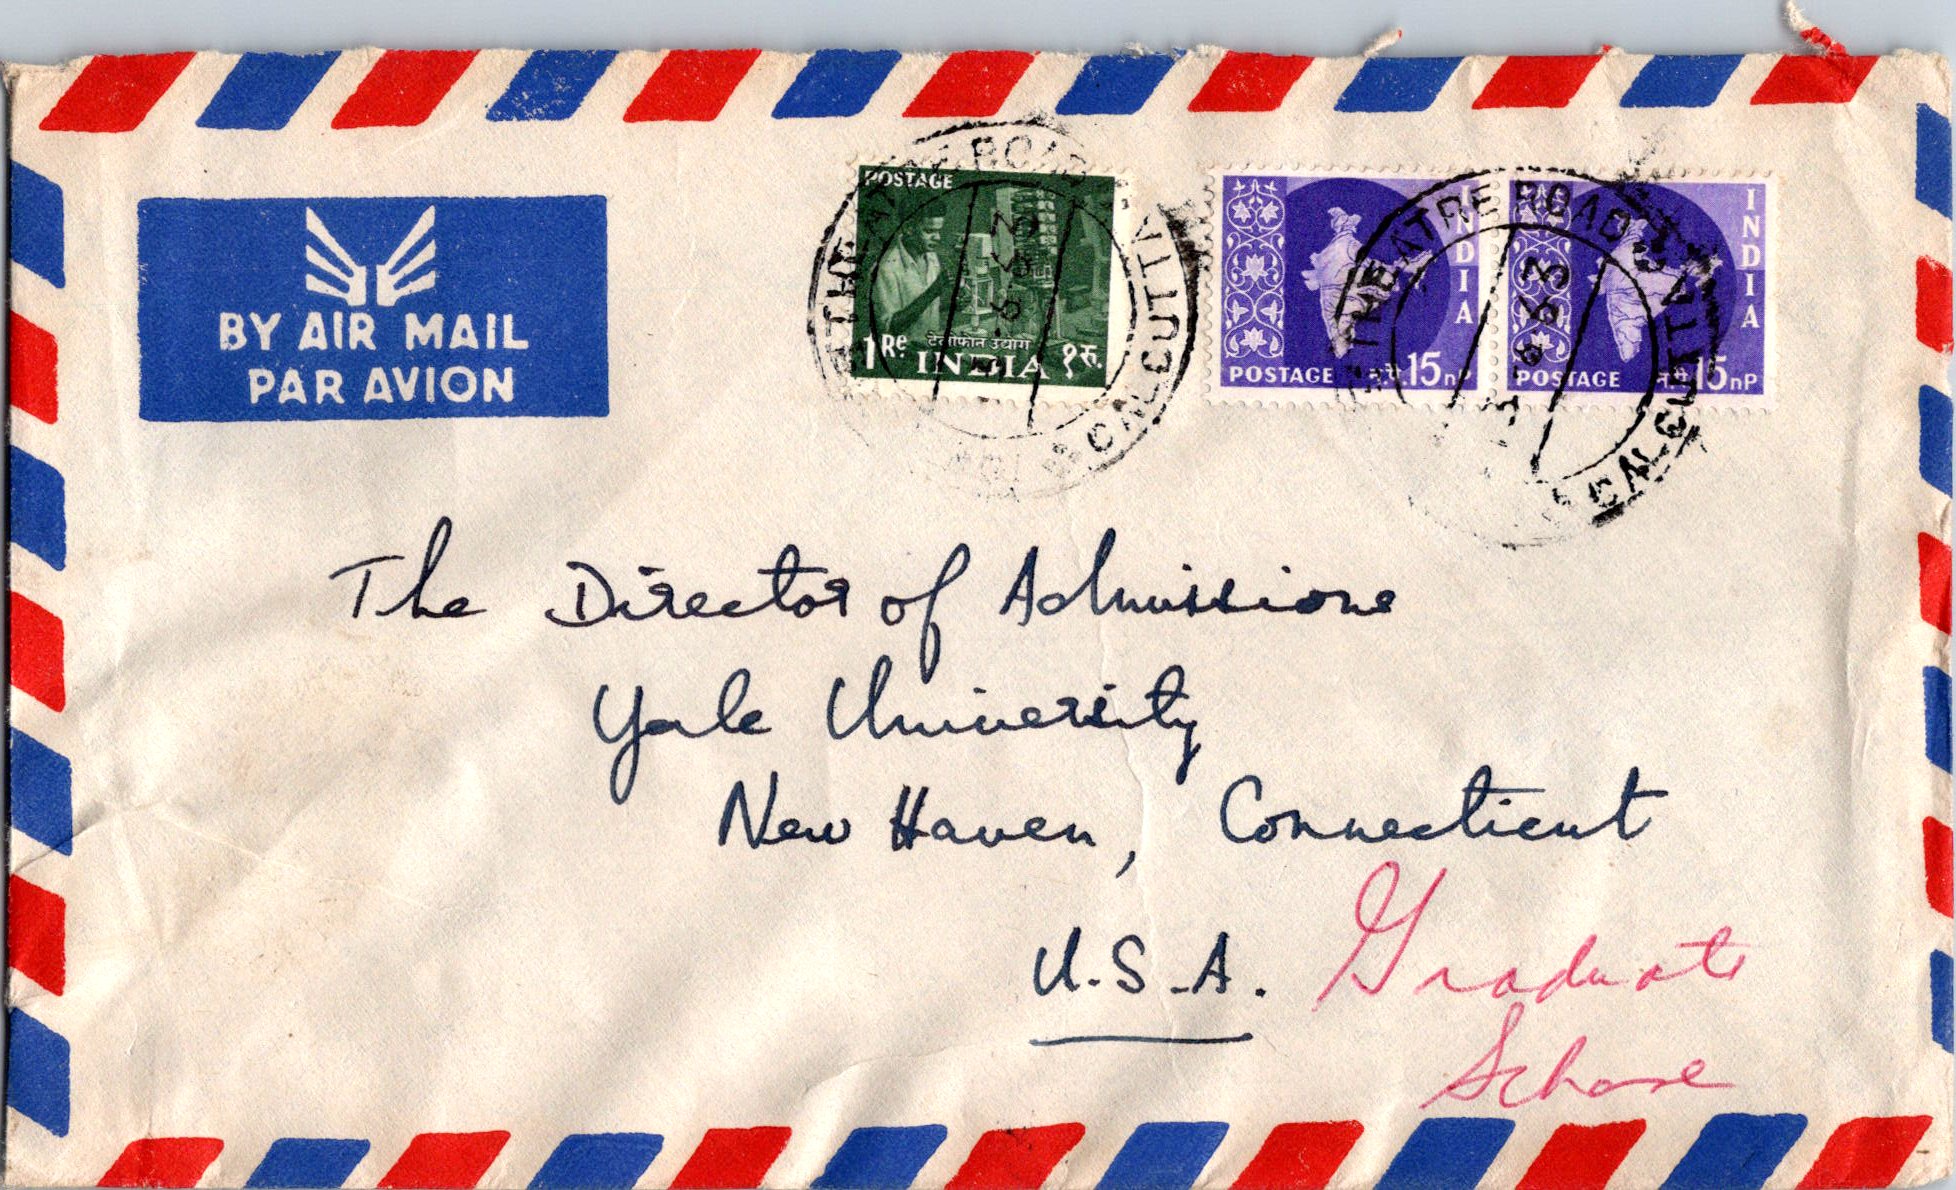 BY AIR MAIL
PAR AVION
POSTAGE
टेलीफोन उद्योग
1 Re INDIA १ रु.
THEATRE ROAD
CALCUTTA
INDIA
POSTAGE न.पै. 15 nP
INDIA
POSTAGE न.पै. 15 nP
THEATRE ROAD
CALCUTTA
The Director of Admissions
Yale University
New Haven, Connecticut
U.S.A.
Graduate
School